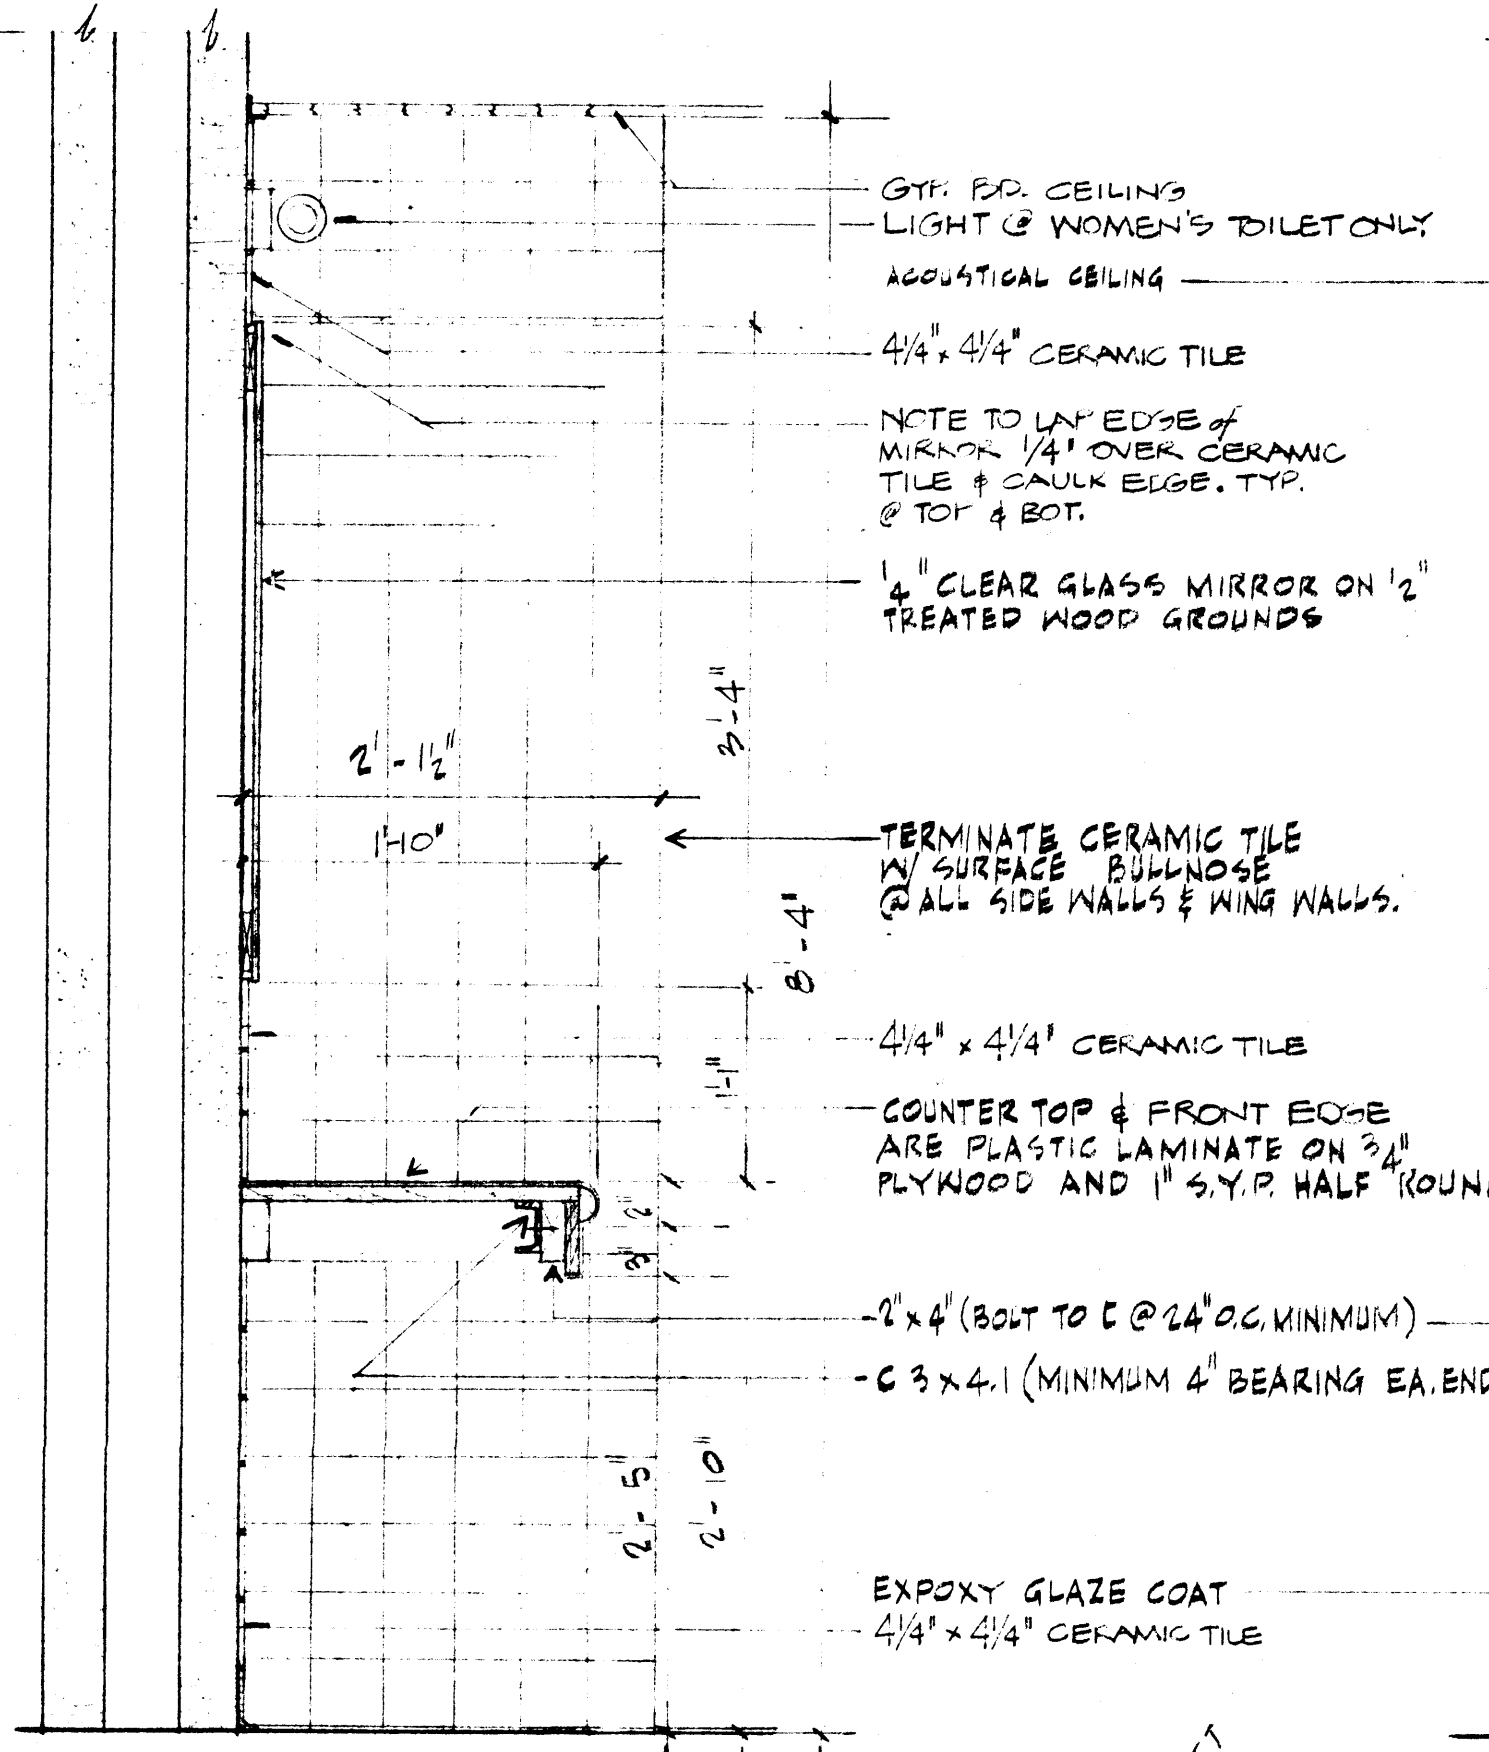 GYP. BD. CEILING
LIGHT @ WOMEN'S TOILET ONLY
ACOUSTICAL CEILING
4 1/4" x 4 1/4" CERAMIC TILE
NOTE TO LAP EDGE of
MIRROR 1/4" OVER CERAMIC
TILE & CAULK EDGE. TYP.
@ TOP & BOT.
1/4" CLEAR GLASS MIRROR ON 1/2"
TREATED WOOD GROUNDS
3'-4"
2'-1 1/2"
1'-10"
TERMINATE CERAMIC TILE
W/ SURFACE BULLNOSE
@ ALL SIDE WALLS & WING WALLS.
8'-4"
4 1/4" x 4 1/4" CERAMIC TILE
1'-1"
COUNTER TOP & FRONT EDGE
ARE PLASTIC LAMINATE ON 3/4"
PLYWOOD AND 1" S.Y.P. HALF ROUN
2"
3"
2" x 4" (BOLT TO C @ 24" O.C. MINIMUM)
C 3 x 4.1 (MINIMUM 4" BEARING EA. END
2'-5"
2'-10"
EXPOXY GLAZE COAT
4 1/4" x 4 1/4" CERAMIC TILE